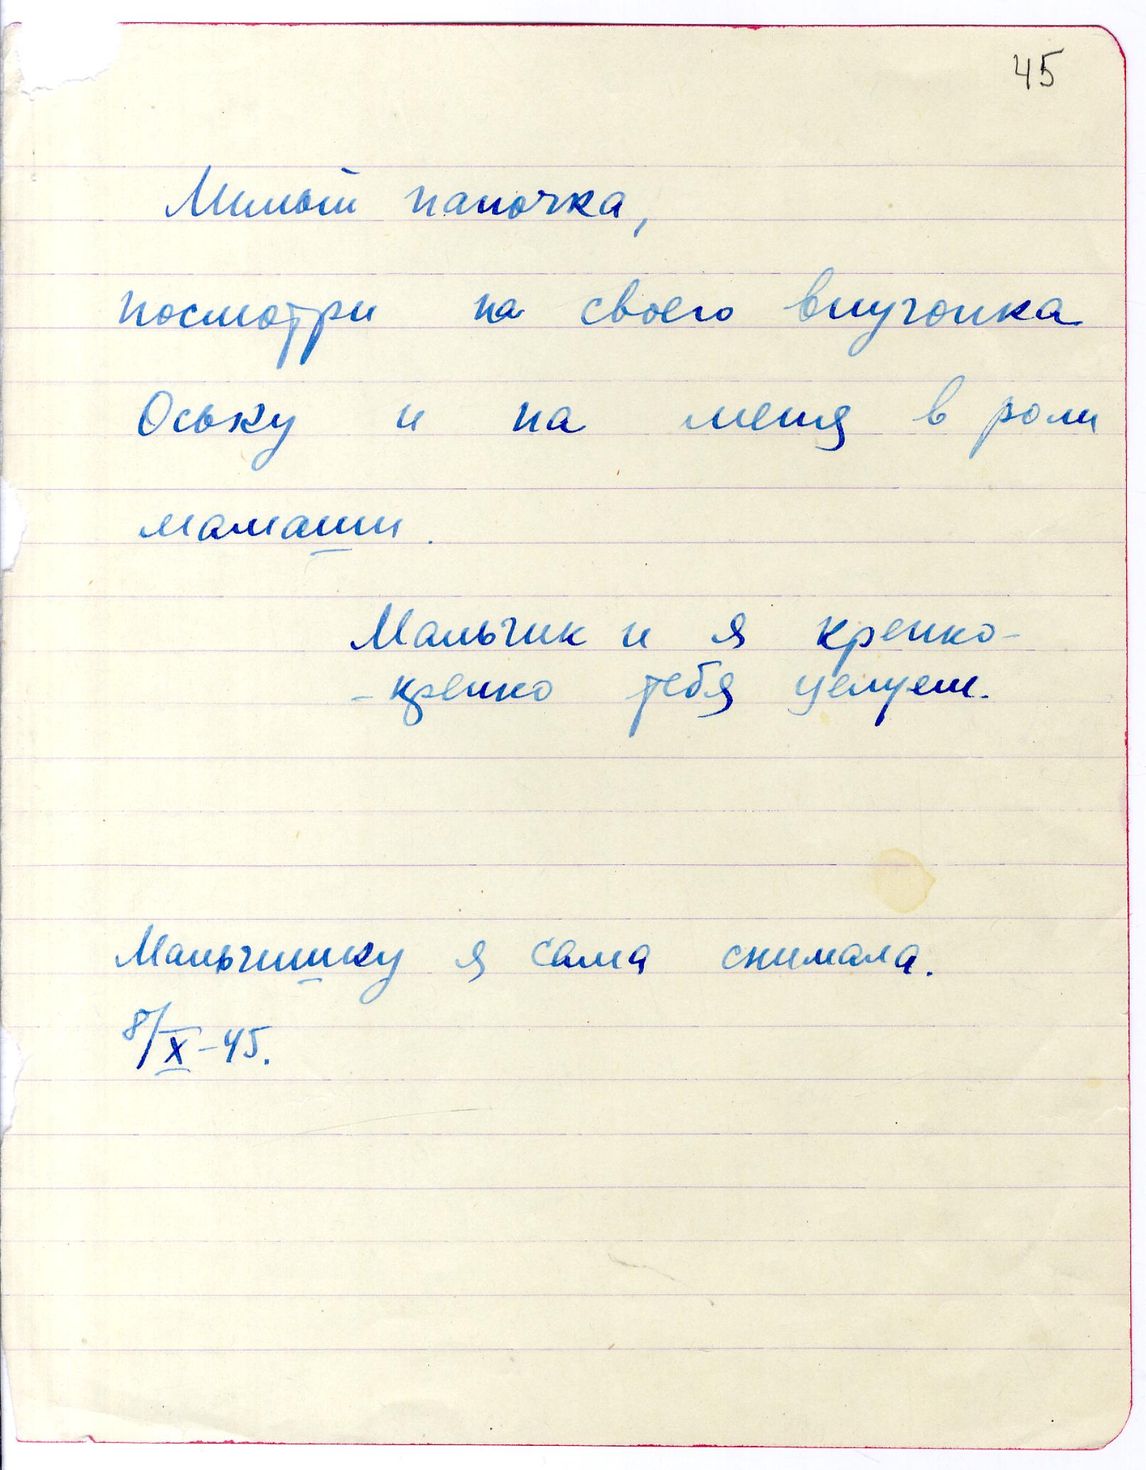 45
Милый папочка,
посмотри на своего внучонка
Оську и на меня в роли
мамаши.
Мальчик и я крепко-
-крепко тебя целуем.
Мальчишку я сама снимала.
8/X-45.